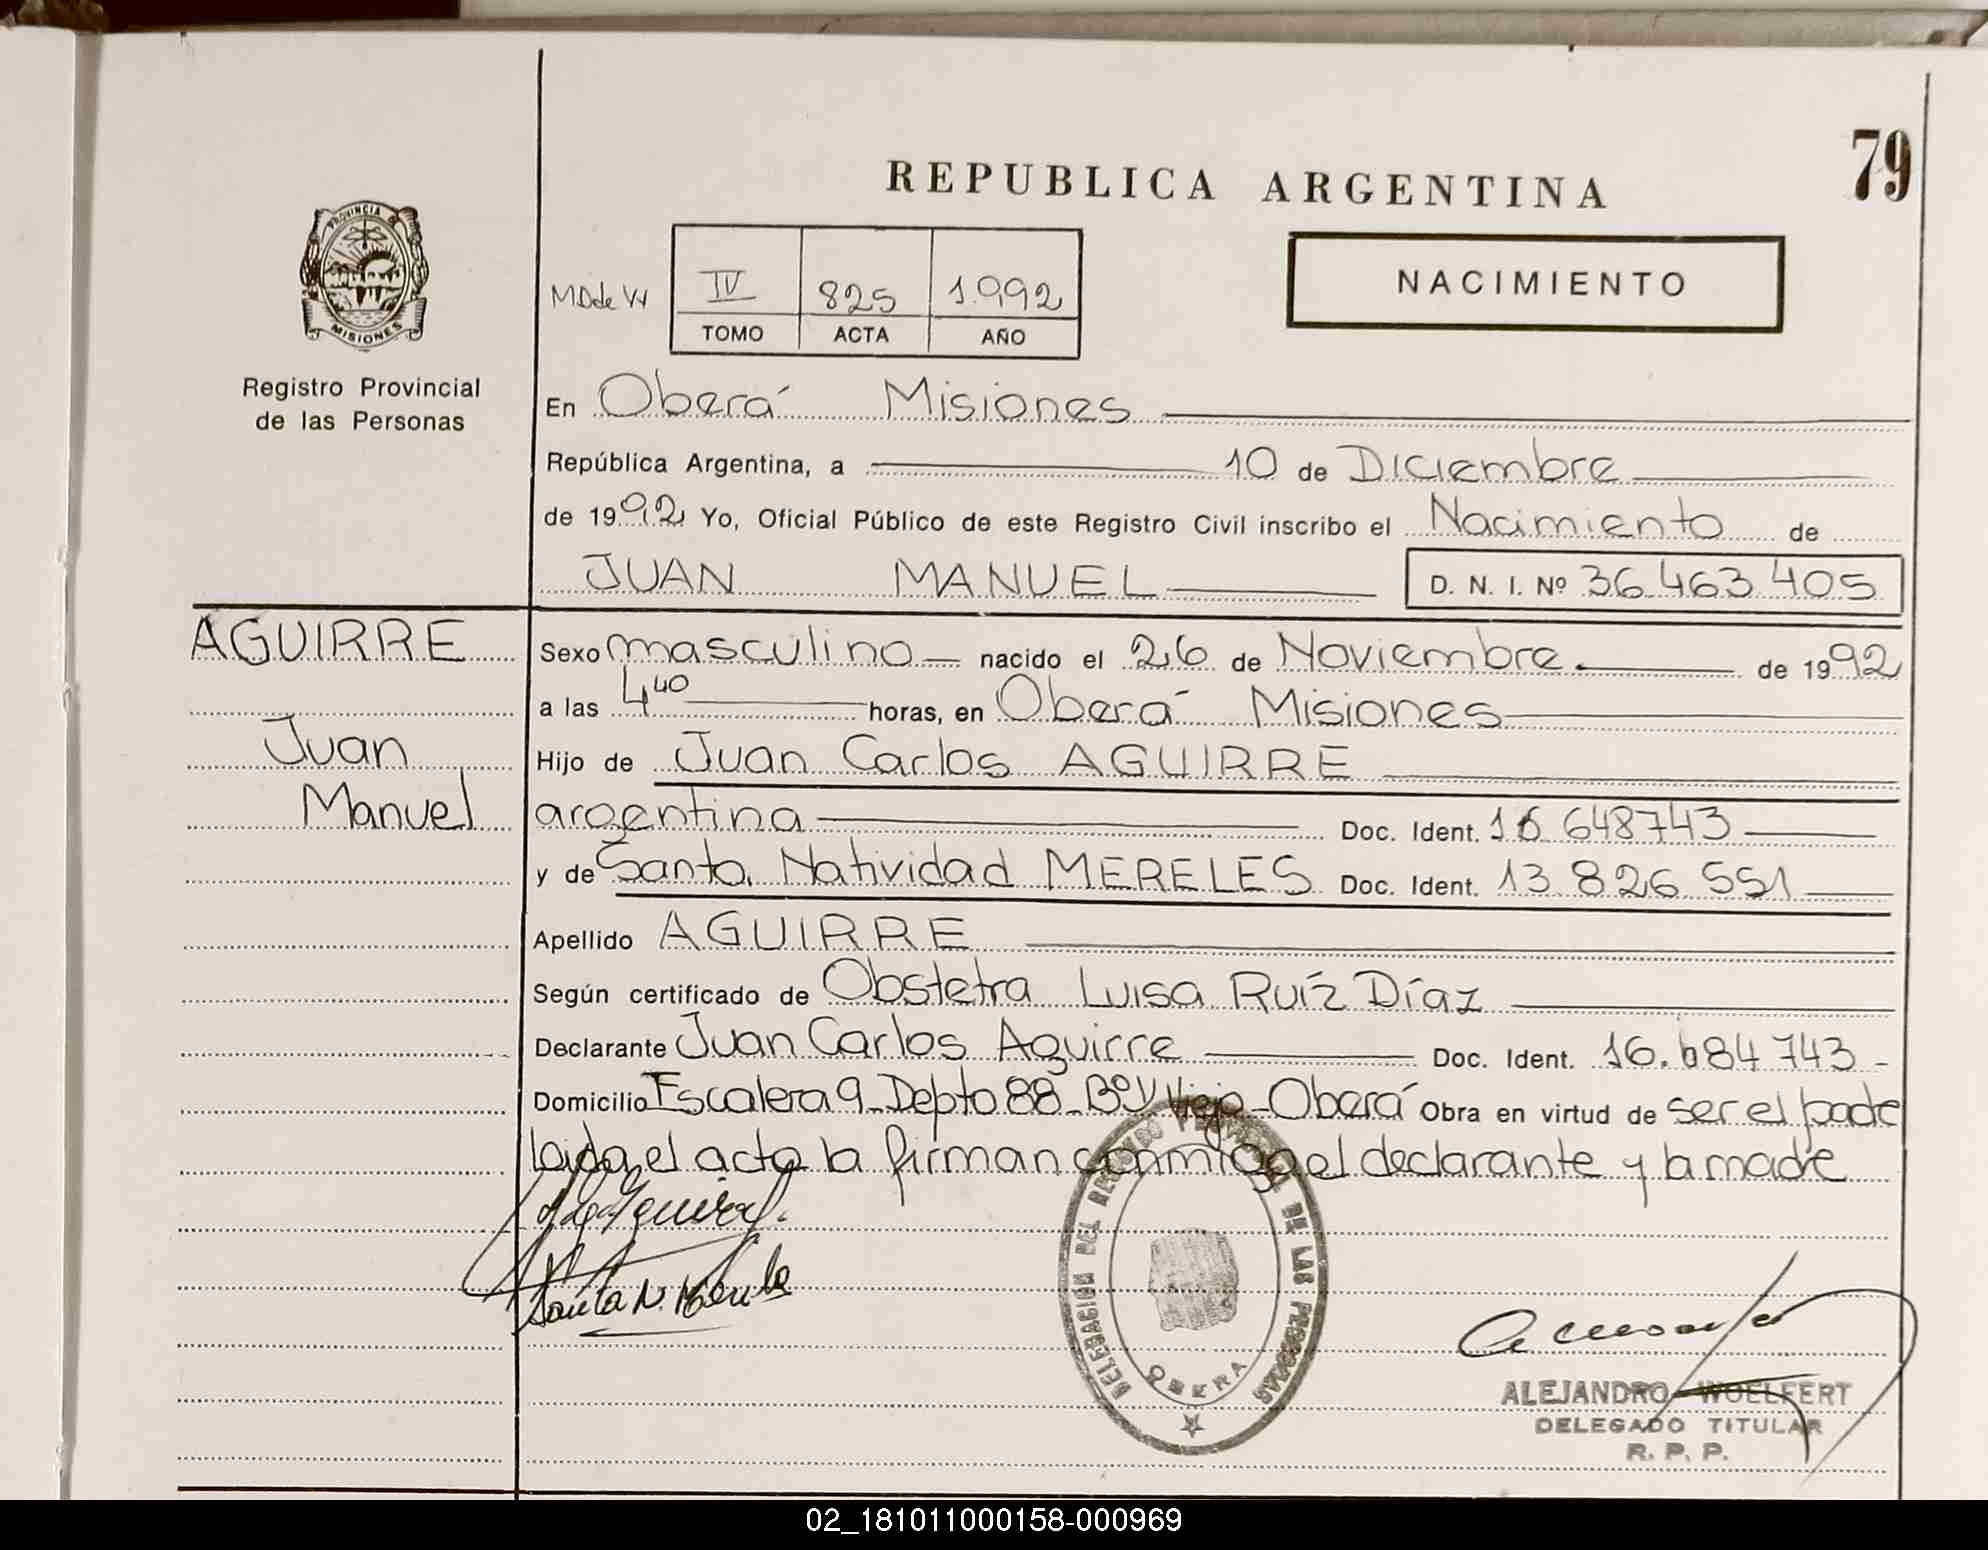 79
REPUBLICA ARGENTINA
PROVINCIA DE
MISIONES
Registro Provincial
de las Personas
IV 825 1.992
TOMO ACTA AÑO
NACIMIENTO
En Oberá Misiones
República Argentina, a 10 de Diciembre
de 1992 Yo, Oficial Público de este Registro Civil inscribo el Nacimiento de
JUAN MANUEL D. N. I. Nº 36.463.405
AGUIRRE
Juan
Manuel
Sexo masculino nacido el 26 de Noviembre de 1992
a las 4 40 horas, en Oberá Misiones
Hijo de Juan Carlos AGUIRRE
argentina Doc. Ident. 16 648743
y de Santa Natividad MERELES Doc. Ident. 13 826 551
Apellido AGUIRRE
Según certificado de Obstetra Luisa Ruíz Díaz
Declarante Juan Carlos Aguirre Doc. Ident. 16.684 743-
Domicilio Escalera 9-Depto 88-Bº V Viejo-Oberá Obra en virtud de ser el padre
leida el acta la firman conmigo el declarante y la madre
Santa N. Mereles
DELEGACION DEL REGISTRO PROVINCIAL DE LAS PERSONAS
OBERA
ALEJANDRO WOELFERT
DELEGADO TITULAR
R. P. P.
02_181011000158-000969